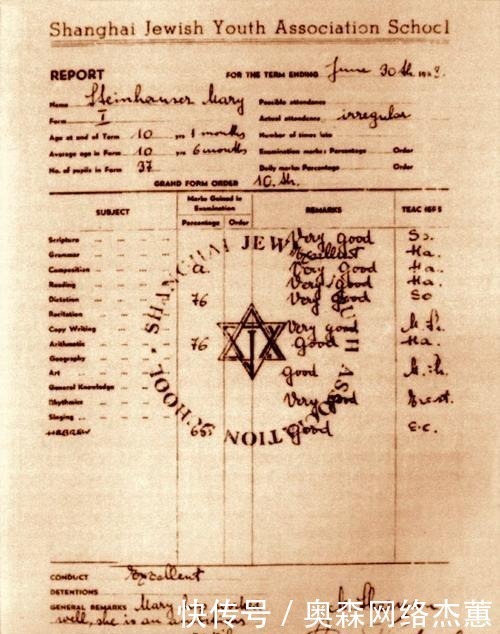 Shanghai Jewish Youth Association School
REPORT
FOR THE TERM ENDING June 30th.
Name Steinhauser Mary
Possible attendance
Form I
Actual attendance irregular
Age at end of Term 10 yrs 1 months
Number of times late
Average age in Form 10 yrs 6 months
Examination marks: Percentage Order
No. of pupils in Form 37
Daily marks: Percentage Order
GRAND FORM ORDER 10.th.
SUBJECT
Marks Gained in Examination
REMARKS
Percentage Order
Scripture Very good So.
Grammar Excellent Ha.
Composition a Very good Ha.
Reading Very good Ha.
Dictation 76 Very good So
Recitation
Copy Writing Very good
Arithmetic 76 Good Ha.
Geography
Art Good
General Knowledge
Rhythmics Very good
Singing
HEBREW 65 Good E.C.
SHANGHAI JEWISH YOUTH ASSOCIATION SCHOOL
CONDUCT Excellent
DETENTIONS
GENERAL REMARKS Mary
well, she is an
快传号 / 奥森网络杰蕙